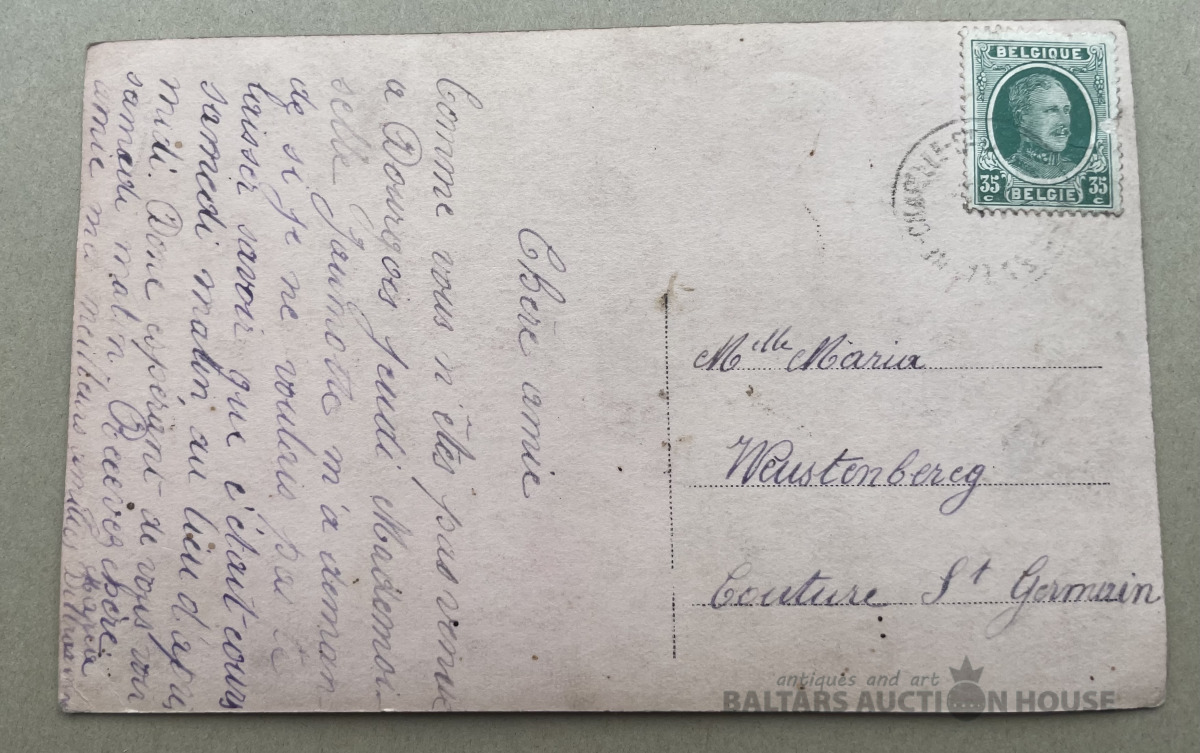 Chère amie
Comme vous n'êtes pas venue
a Dourgoes jeudi Mademoi-
selle Jaumotte m'a deman-
de si je ne voulais pas te
laisser savoir que c'était cours
samedi matin au lieu d'après
midi. Donc espérant de vous voir
samedi matin Recevez chère
amie me meilleurs
Maria
BELGIQUE
35 c
BELGIE
35 c
CHAPELLE-S
Mlle Maria
Weustenbercg
Couture St Germain
antiques and art
BALTARS AUCTION HOUSE